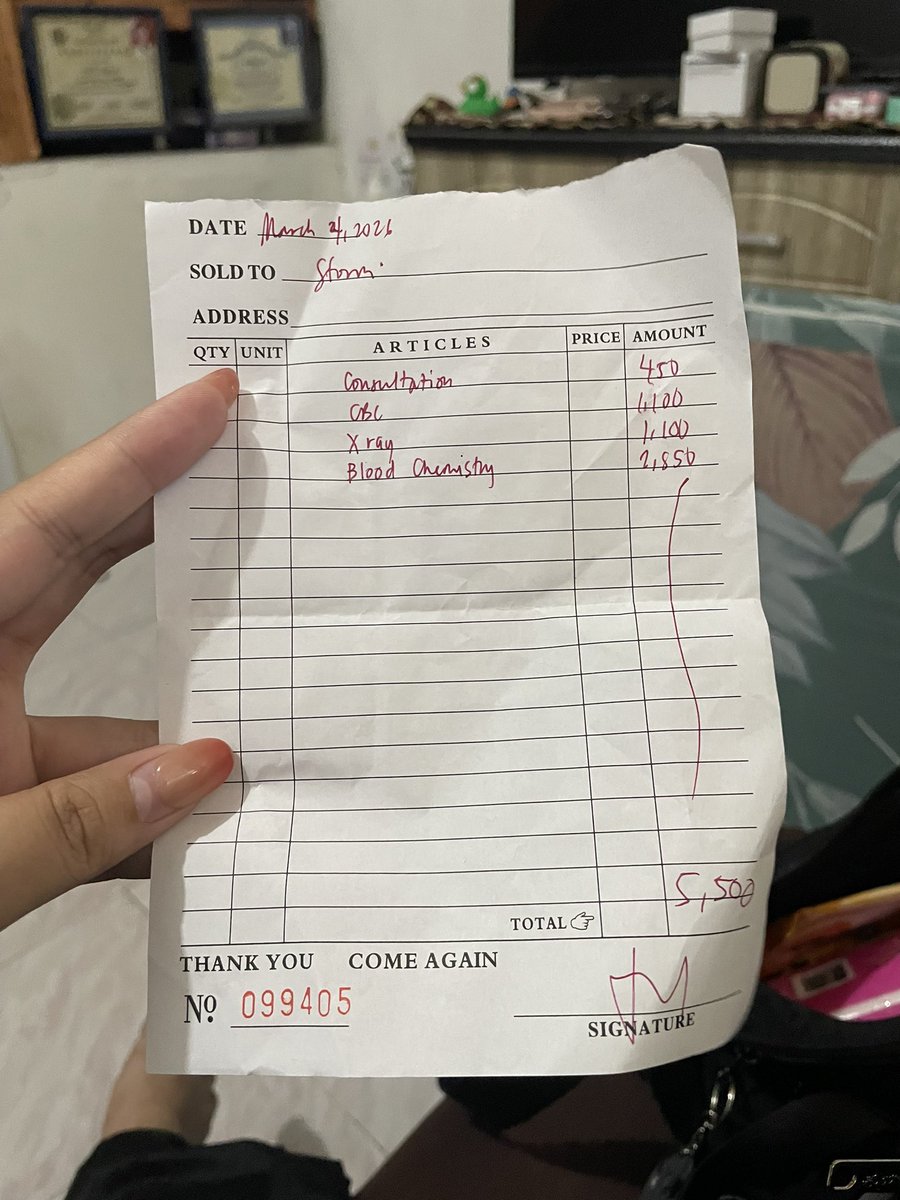 DATE March 4, 2026
SOLD TO Storm
ADDRESS
QTY UNIT ARTICLES PRICE AMOUNT
Consultation 450
CBC 1,100
X ray 1,100
Blood Chemistry 2,850
5,500
TOTAL
THANK YOU COME AGAIN
Nº 099405
SIGNATURE